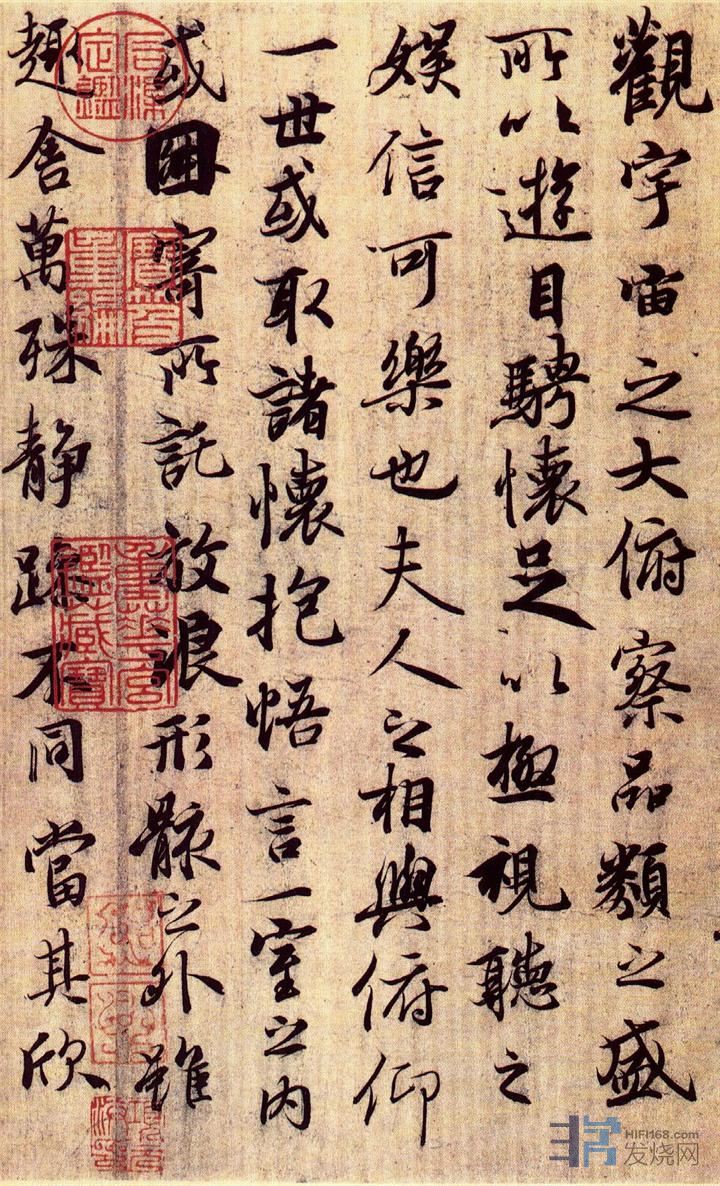 觀宇宙之大俯察品類之盛
所以遊目騁懷足以極視聽之
娛信可樂也夫人之相與俯仰
一世或取諸懷抱悟言一室之內
或因寄所託放浪形骸之外雖
趣舍萬殊靜躁不同當其欣
HIFI168.com
发烧网